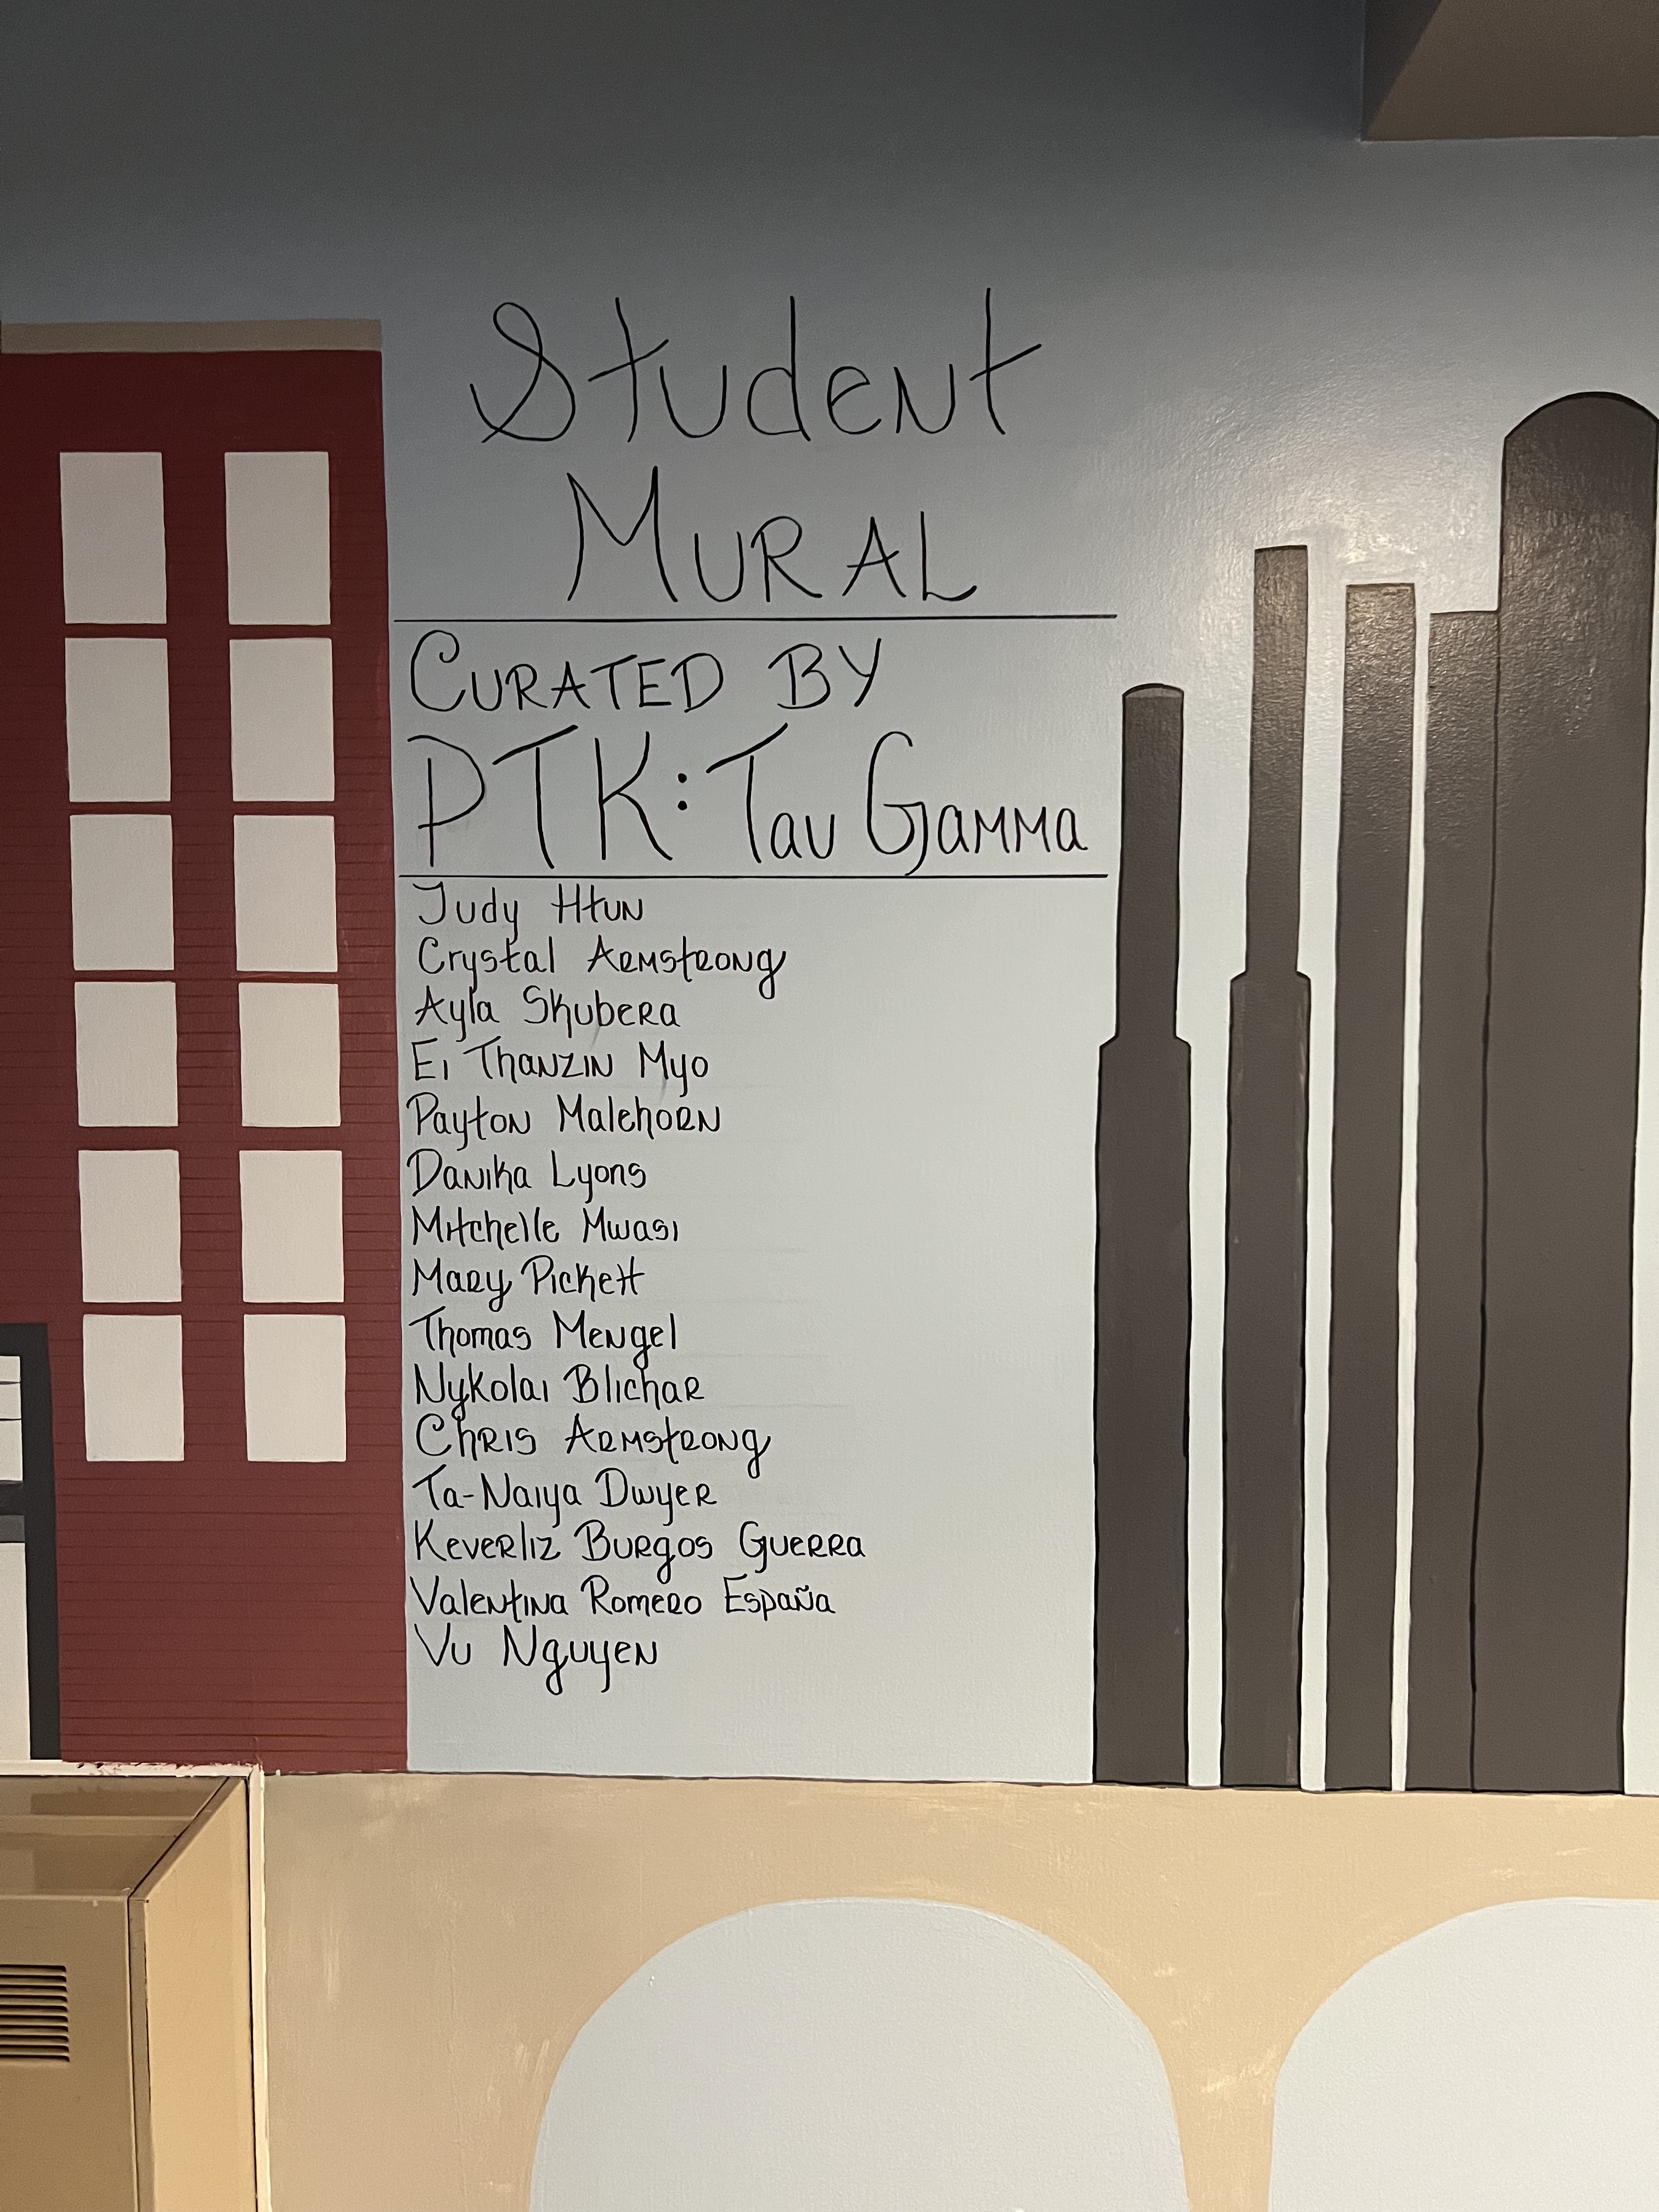 Student
MURAL
CURATED BY
PTK: Tau Gamma
Judy Htun
Crystal Armstrong
Ayla Skubera
Ei Thanzin Myo
Payton Malehorn
Danika Lyons
Mitchelle Mwasi
Mary Pickett
Thomas Mengel
Nykolai Blichar
Chris Armstrong
Ta-Naiya Dwyer
Keverliz Burgos Guerra
Valentina Romero España
Vu Nguyen